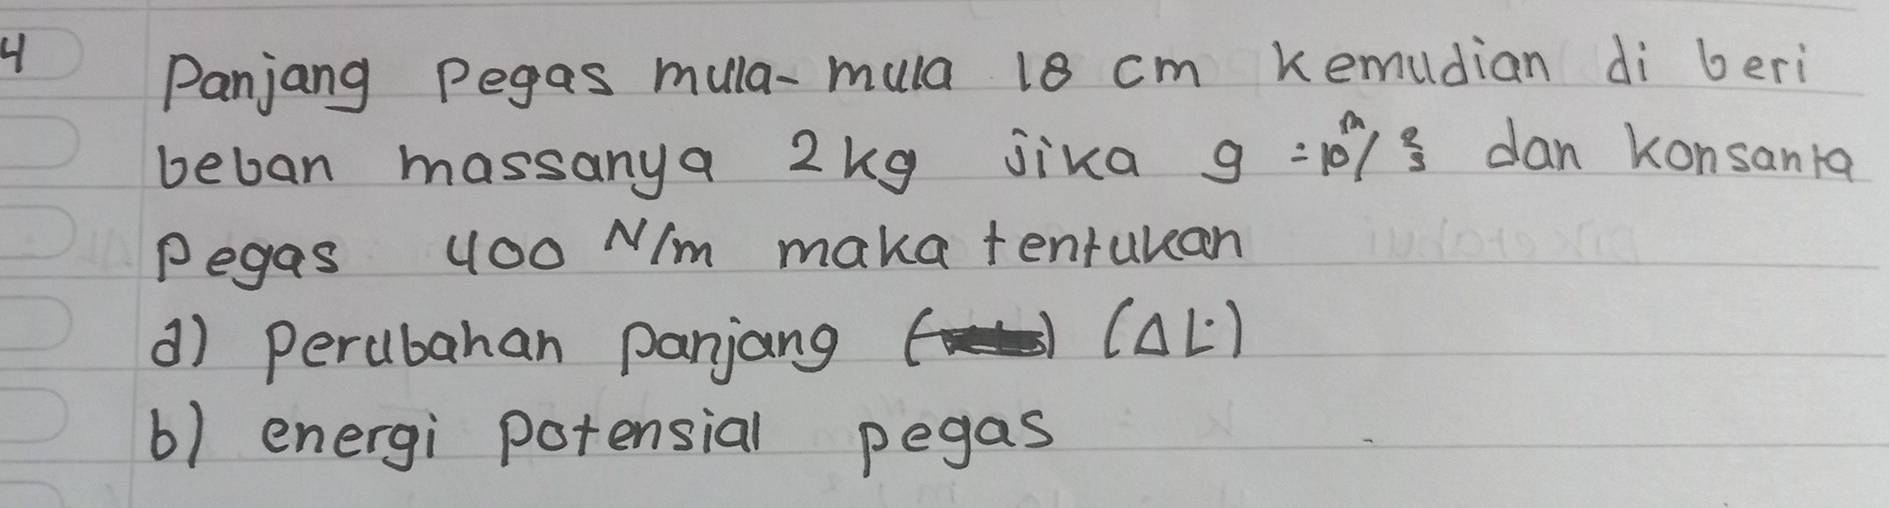 4 Panjang Pegas mula-mula 18 cm kemudian di beri
beban massanya 2 kg jika g = 10 m/s² dan konsanta
Pegas 400 N/m maka tentukan
a) perubahan panjang (ΔL)
b) energi potensial pegas